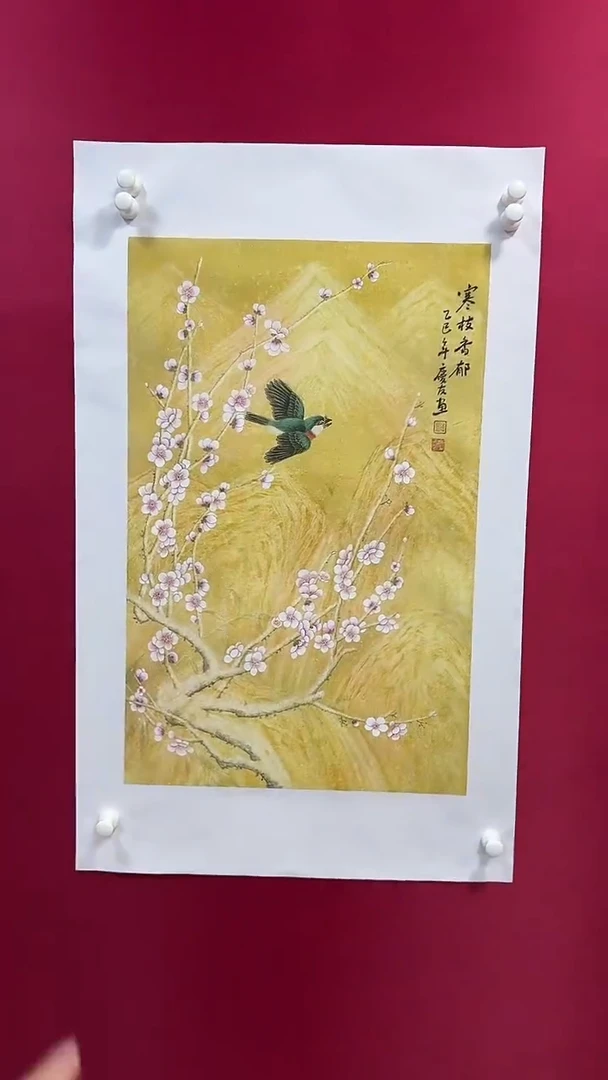 寒枝香郁
乙巳年庆友画